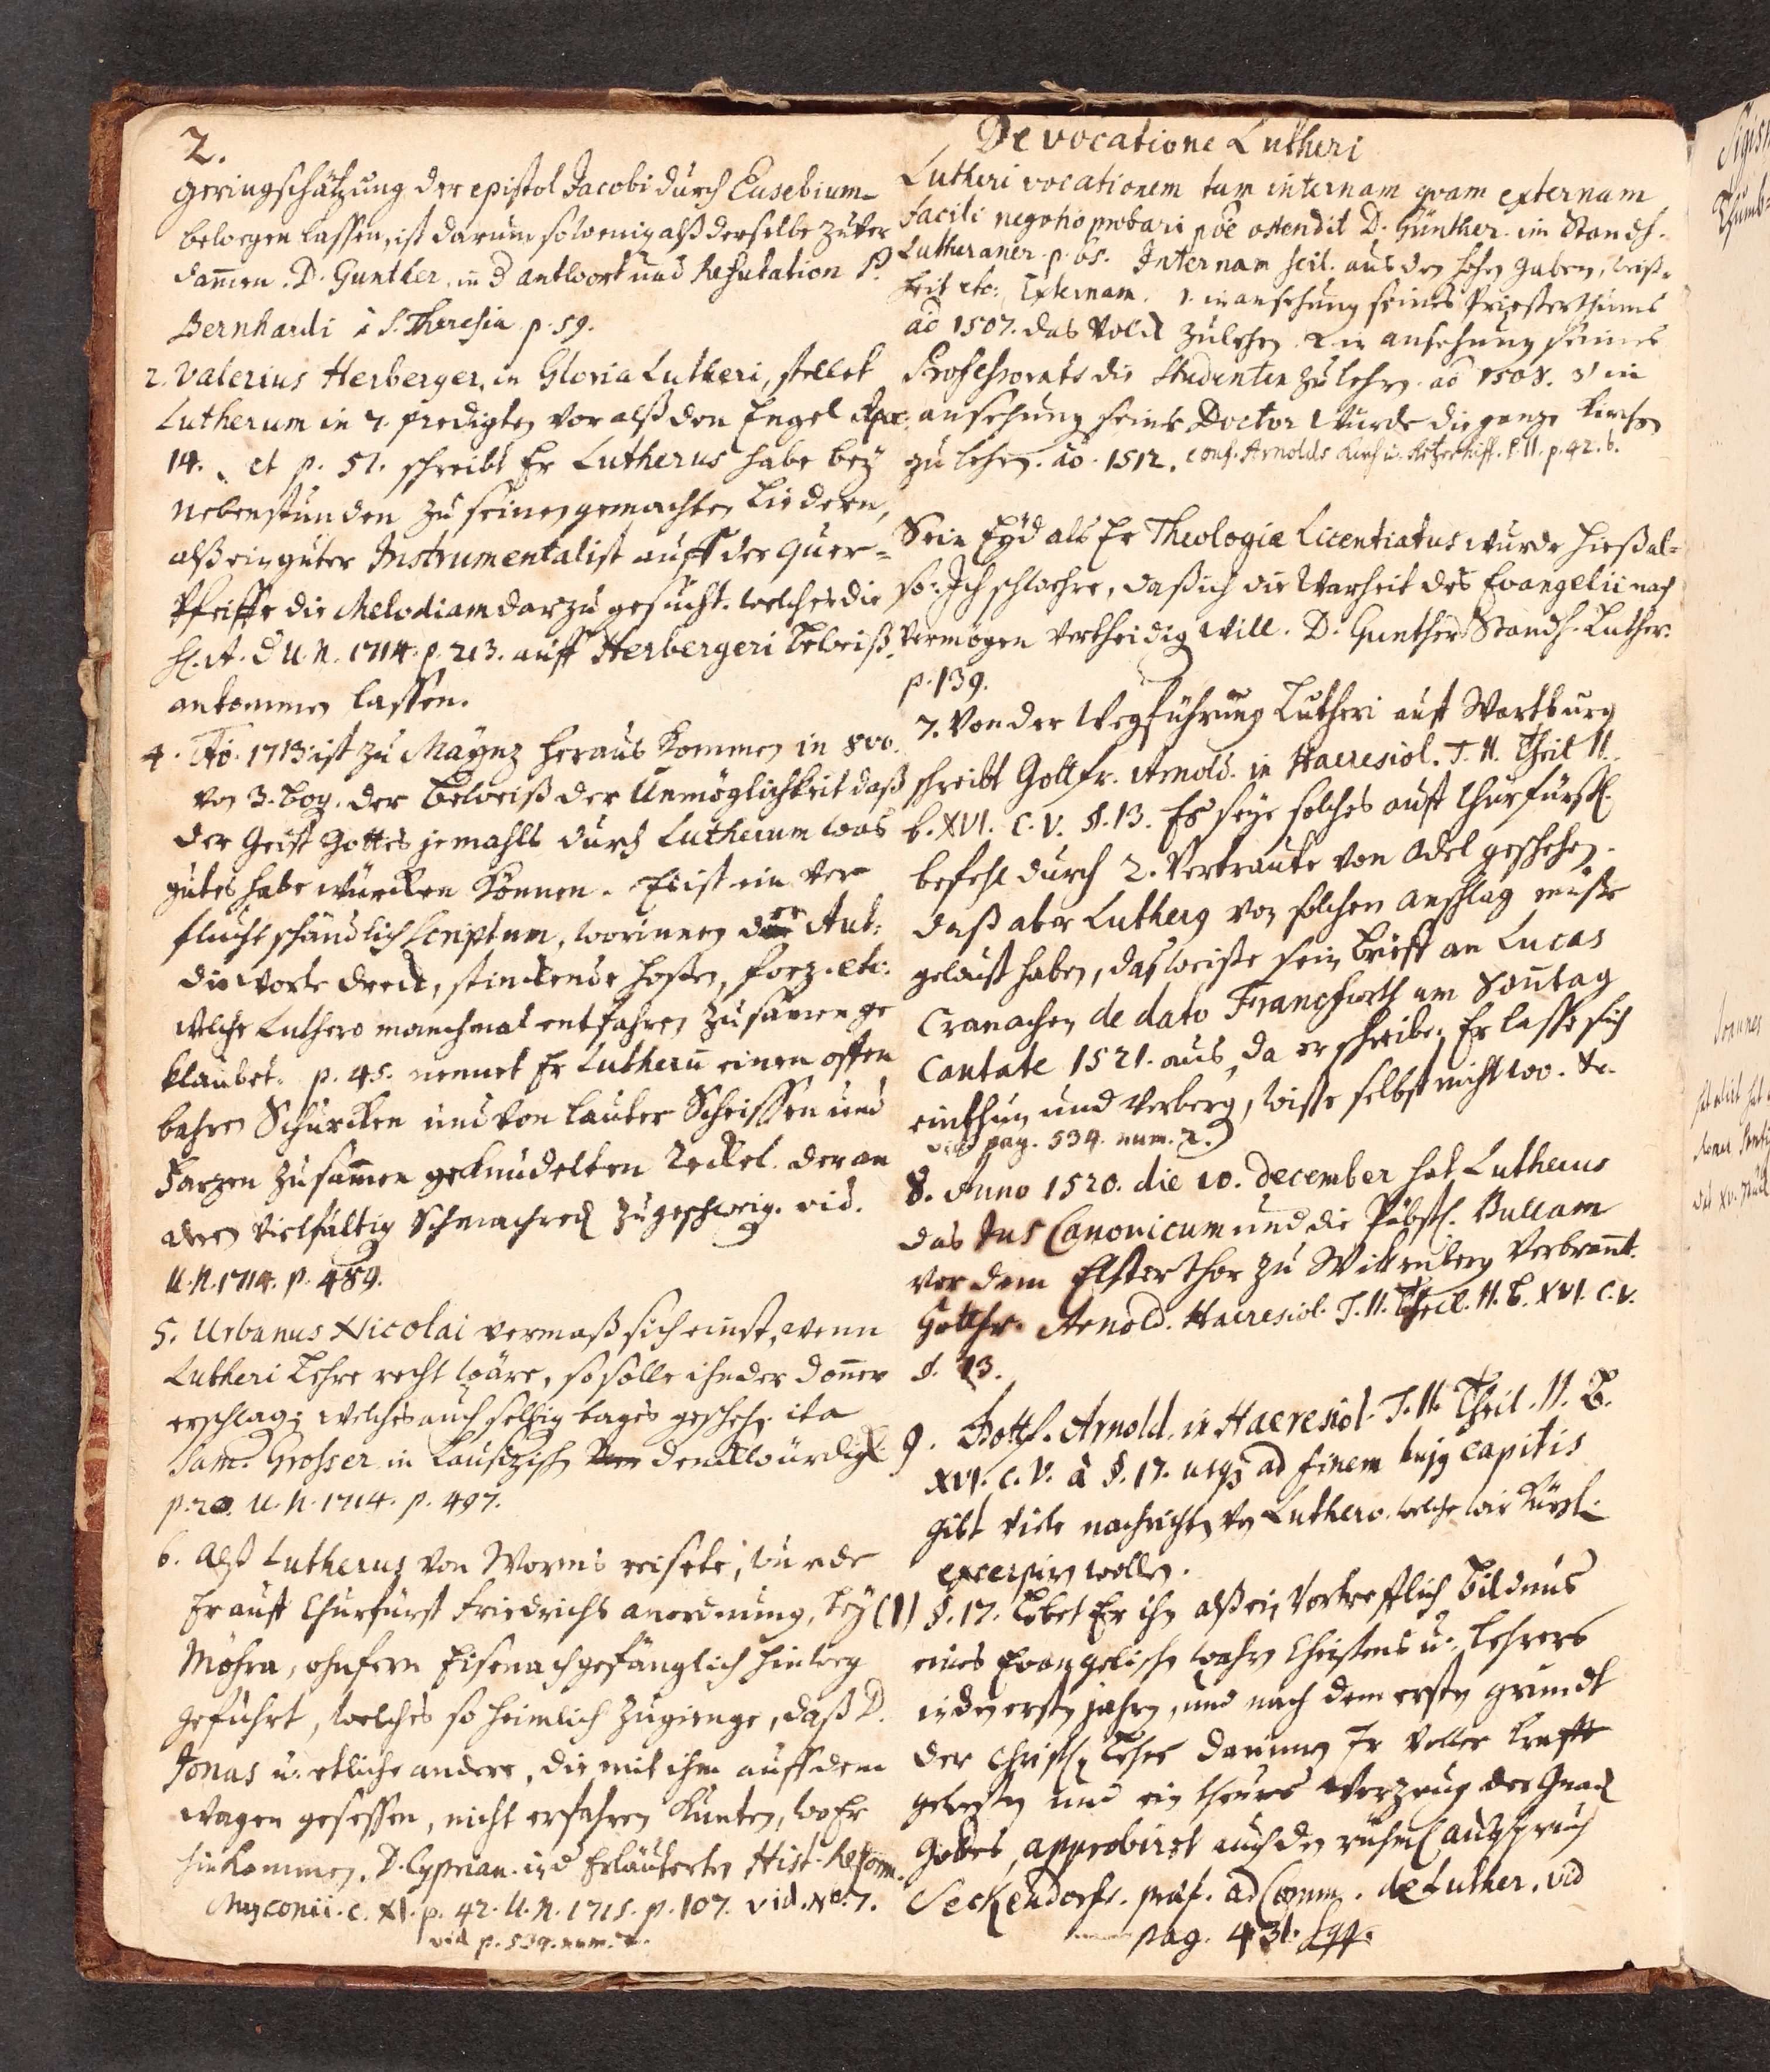 2.
Geringschätzung der epistol Jacobi durch Eusebium
bewegen lassen, ist darum so wenig alß derselbe zu ver
dam̄en. D. Gunther, in d antwort und Refutation P.
Bernhardi à S. Theresia p. 59.
2. Valerius Herberger, in Gloria Lutheri, stellet
Lutherum in 7. predigten vor alß den Engel Apoc.
14. et p. 51. schreibt Er Lutherus habe bey
nebenstunden zu seinen gemachten Liedern,
alß ein guter Instrumentalist auff der Quer-
Pfeiffe die Melodiam darzu gesucht. welches die
H. A. d U. N. 1714. p. 213. auff Herbergeri beweiß
ankommen lassen.
4. Ao. 1713 ist zu Maynz heraus kommen in 8vo.
von 3. bog. der Beweiß der Unmöglichkeit daß
der Geist Gottes jemahls durch Lutherum was
gutes habe würcken können. Es ist ein ver
flucht schändlich Scriptum, worinnen der Aut:
die worte dreck, stinckende hosen, forz. etc:
welche Luthero manchmal entfahren zusam̄en ge
klaubet. p. 45. nennet Er Lutherū einen offen
bahren Schurcken und von lauter Scheissen und
Farzen zusam̄en geknudelten Teckel. der an
deren vielfältig Schmachred zugeschweig. vid.
U. N. 1714. p. 489.
5. Urbanus Nicolai vermaß sich einst, wenn
Lutheri Lehre recht wäre, so solle ihn der don̄er
erschlag; welches auch selbig tages gescheh. ita
Sam. Grosser in Lausizisch denckwürdigk.
p. 20. U. N. 1714. p. 497.
6. Alß Lutherus von Worms reisete, wurde
Er auff Churfürst Friedrichs anordnung, bey
Möhra, ohnfern Eisenach gefänglich hinweg
geführt, welches so heimlich zugienge, daß D.
Jonas u. etliche andere, die mit ihm auff dem
wagen gesessen, nicht erfahren kunten, wo Er
hinkommen. D. Cyprian. in d Erläuterten Hist. Reform.
Myconii. c. XI. p. 42. U. N. 1715. p. 107. vid. No. 7.
vid p. 539. num. 2.
De vocatione Lutheri
Lutheri vocationem tam internam qvam externam
facili negotio probari pōe ostendit D. Günther. im Standh.
Lutheraner. p. 65. Internam scil. aus den hohen gaben, weiß-
heit etc. Externam. 1. in ansehung seines Priesterthums
aō 1507. das Volck zulehren 2 in ansehung seines
Professorats die Studenten zu lehren aō 1508. 3 in
ansehung seines Doctor Wurde die ganze Kirche
zu lehren. aō. 1512. conf. Arnolds Kirch u. Ketzerhist. P. II. p. 42. b.
Sein Eyd als Er Theologiæ Licentiatus wurde hieß al-
so: Ich schwehre, daß ich die Warheit des Evangelii nach
vermögen vertheidig will. D. Gunther Standh. Luther.
p. 139.
7. Von der Wegführung Lutheri auff Wartburg
schreibt Gottfr. Arnold. in Haeresiol. T. II. Theil II.
b. XVI. c. V. §. 13. Es seye solches auff Churfürstl.
befehl durch 2. Vertraute von Adel geschehen.
daß aber Lutherg von solchen anschlag müste
gewust haben, das weiste sein brieff an Lucas
Cranachen de dato Francfurth am Son̄tag
Cantate 1521. aus, da er schreibe, Er lasse sich
einthun und verberg, wisse selbst nicht wo. &c.
vid pag. 534. num. 2.
8. Anno 1520. die 10. december hat Lutherus
das Jus Canonicum und die Päbstl. Bullam
vor dem Elsterthor zu Wittenberg verbran̄t.
Gottfr. Arnold. Haeresiol. T. II. Theil. II. B. XVI. c. V.
§. 13.
9. Gottf. Arnold. in Haeresiol. T. II. Theil. II. B.
XVI. c. V. à §. 17. usqꝫ ad finem hujꝰ capitis
gibt viele nachrichten von Luthero. welche wir kürzl.
excerpiren wollen.
(1) §. 17. Lobet Er ihn alß ein vortrefflich Bildnus
eines Evangelischen wahren Christens u. Lehrers
in den ersten jahren, und nach dem ersten grundt
der Christl. Lehre darinnen Er voller krafft
gewesen und ein theures Werzeug der Gnad
Gottes, approbiret auch den rühml. Außspruch
Seckendorfs. præf. ad Comm. de Luther. vid
pag. 431. sqq.